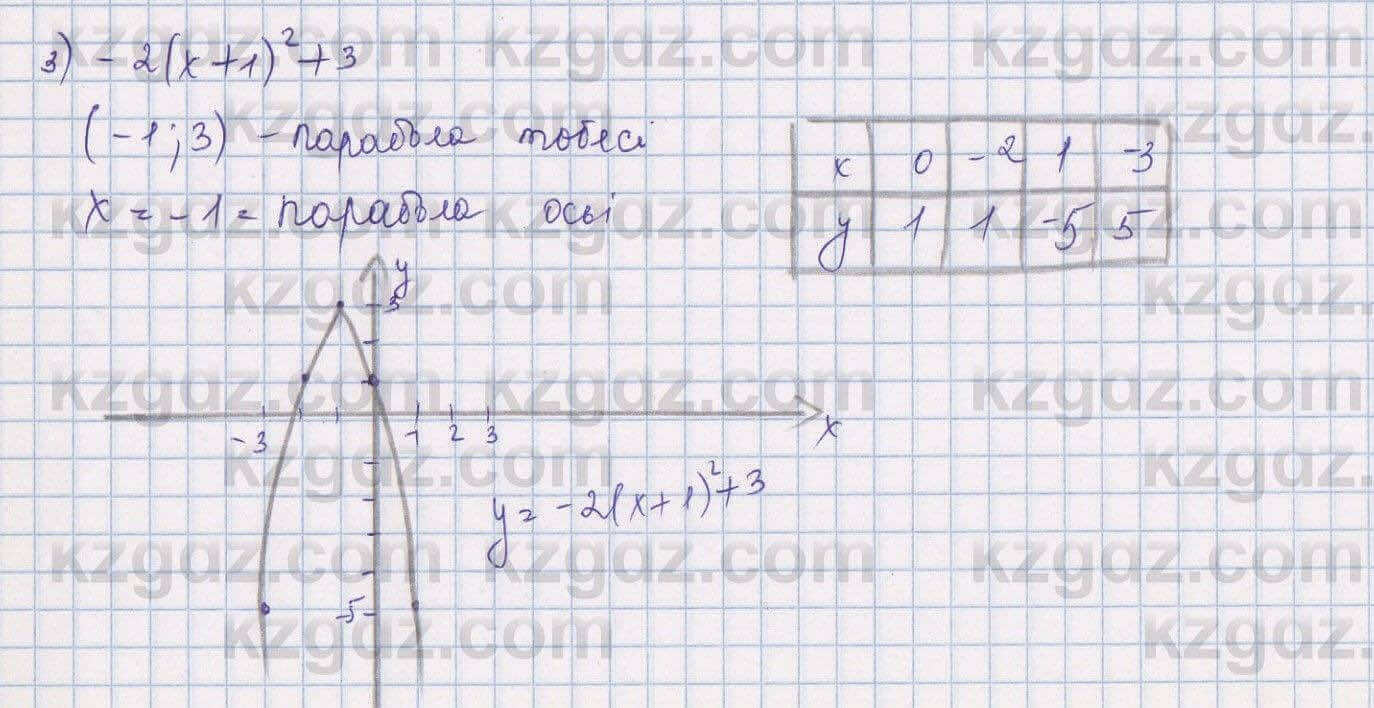 3) - 2(x+1)²+3
(-1; 3) - парабола төбесі
x = -1 = парабола осі
x 0 -2 1 -3
y 1 1 -5 5
y
3
-3 1 2 3
x
y = -2(x+1)²+3
-5
kzgdz.com kzgdz.com kzgdz.com
kzgdz.com kzgdz.
kzgdz.com kzgdz.com kzgdz.com
kzgdz.com kzgdz.
kzgdz.com kzgdz.com kzgdz.com
kzgdz.com kzgdz.
kzgdz.com kzgdz.com kzgdz.com
kzgdz.com kzgdz.